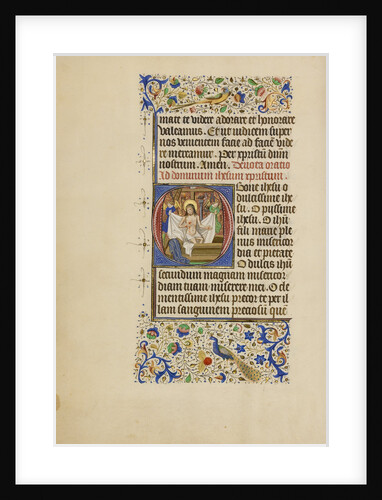 mate te videre adorare et honorare
valeamus. Et ut iudicem super
nos venientem facie ad faciē vide
re mereamur. Per xpristū dnm̄
nostrum. Amen. Devota oratio
Ad dominum ihesum xpristum.
O bone ihesu o
dulcissime ihe
su. O pyssime
ihesu. O ihū
fili marie ple
nus misericor
dia et pietate
O dulcis ihū
secundum magnam misericor
diam tuam miserere mei. O cle
mentissime ihesu precor te per il
lum sanguinem preciosū quē